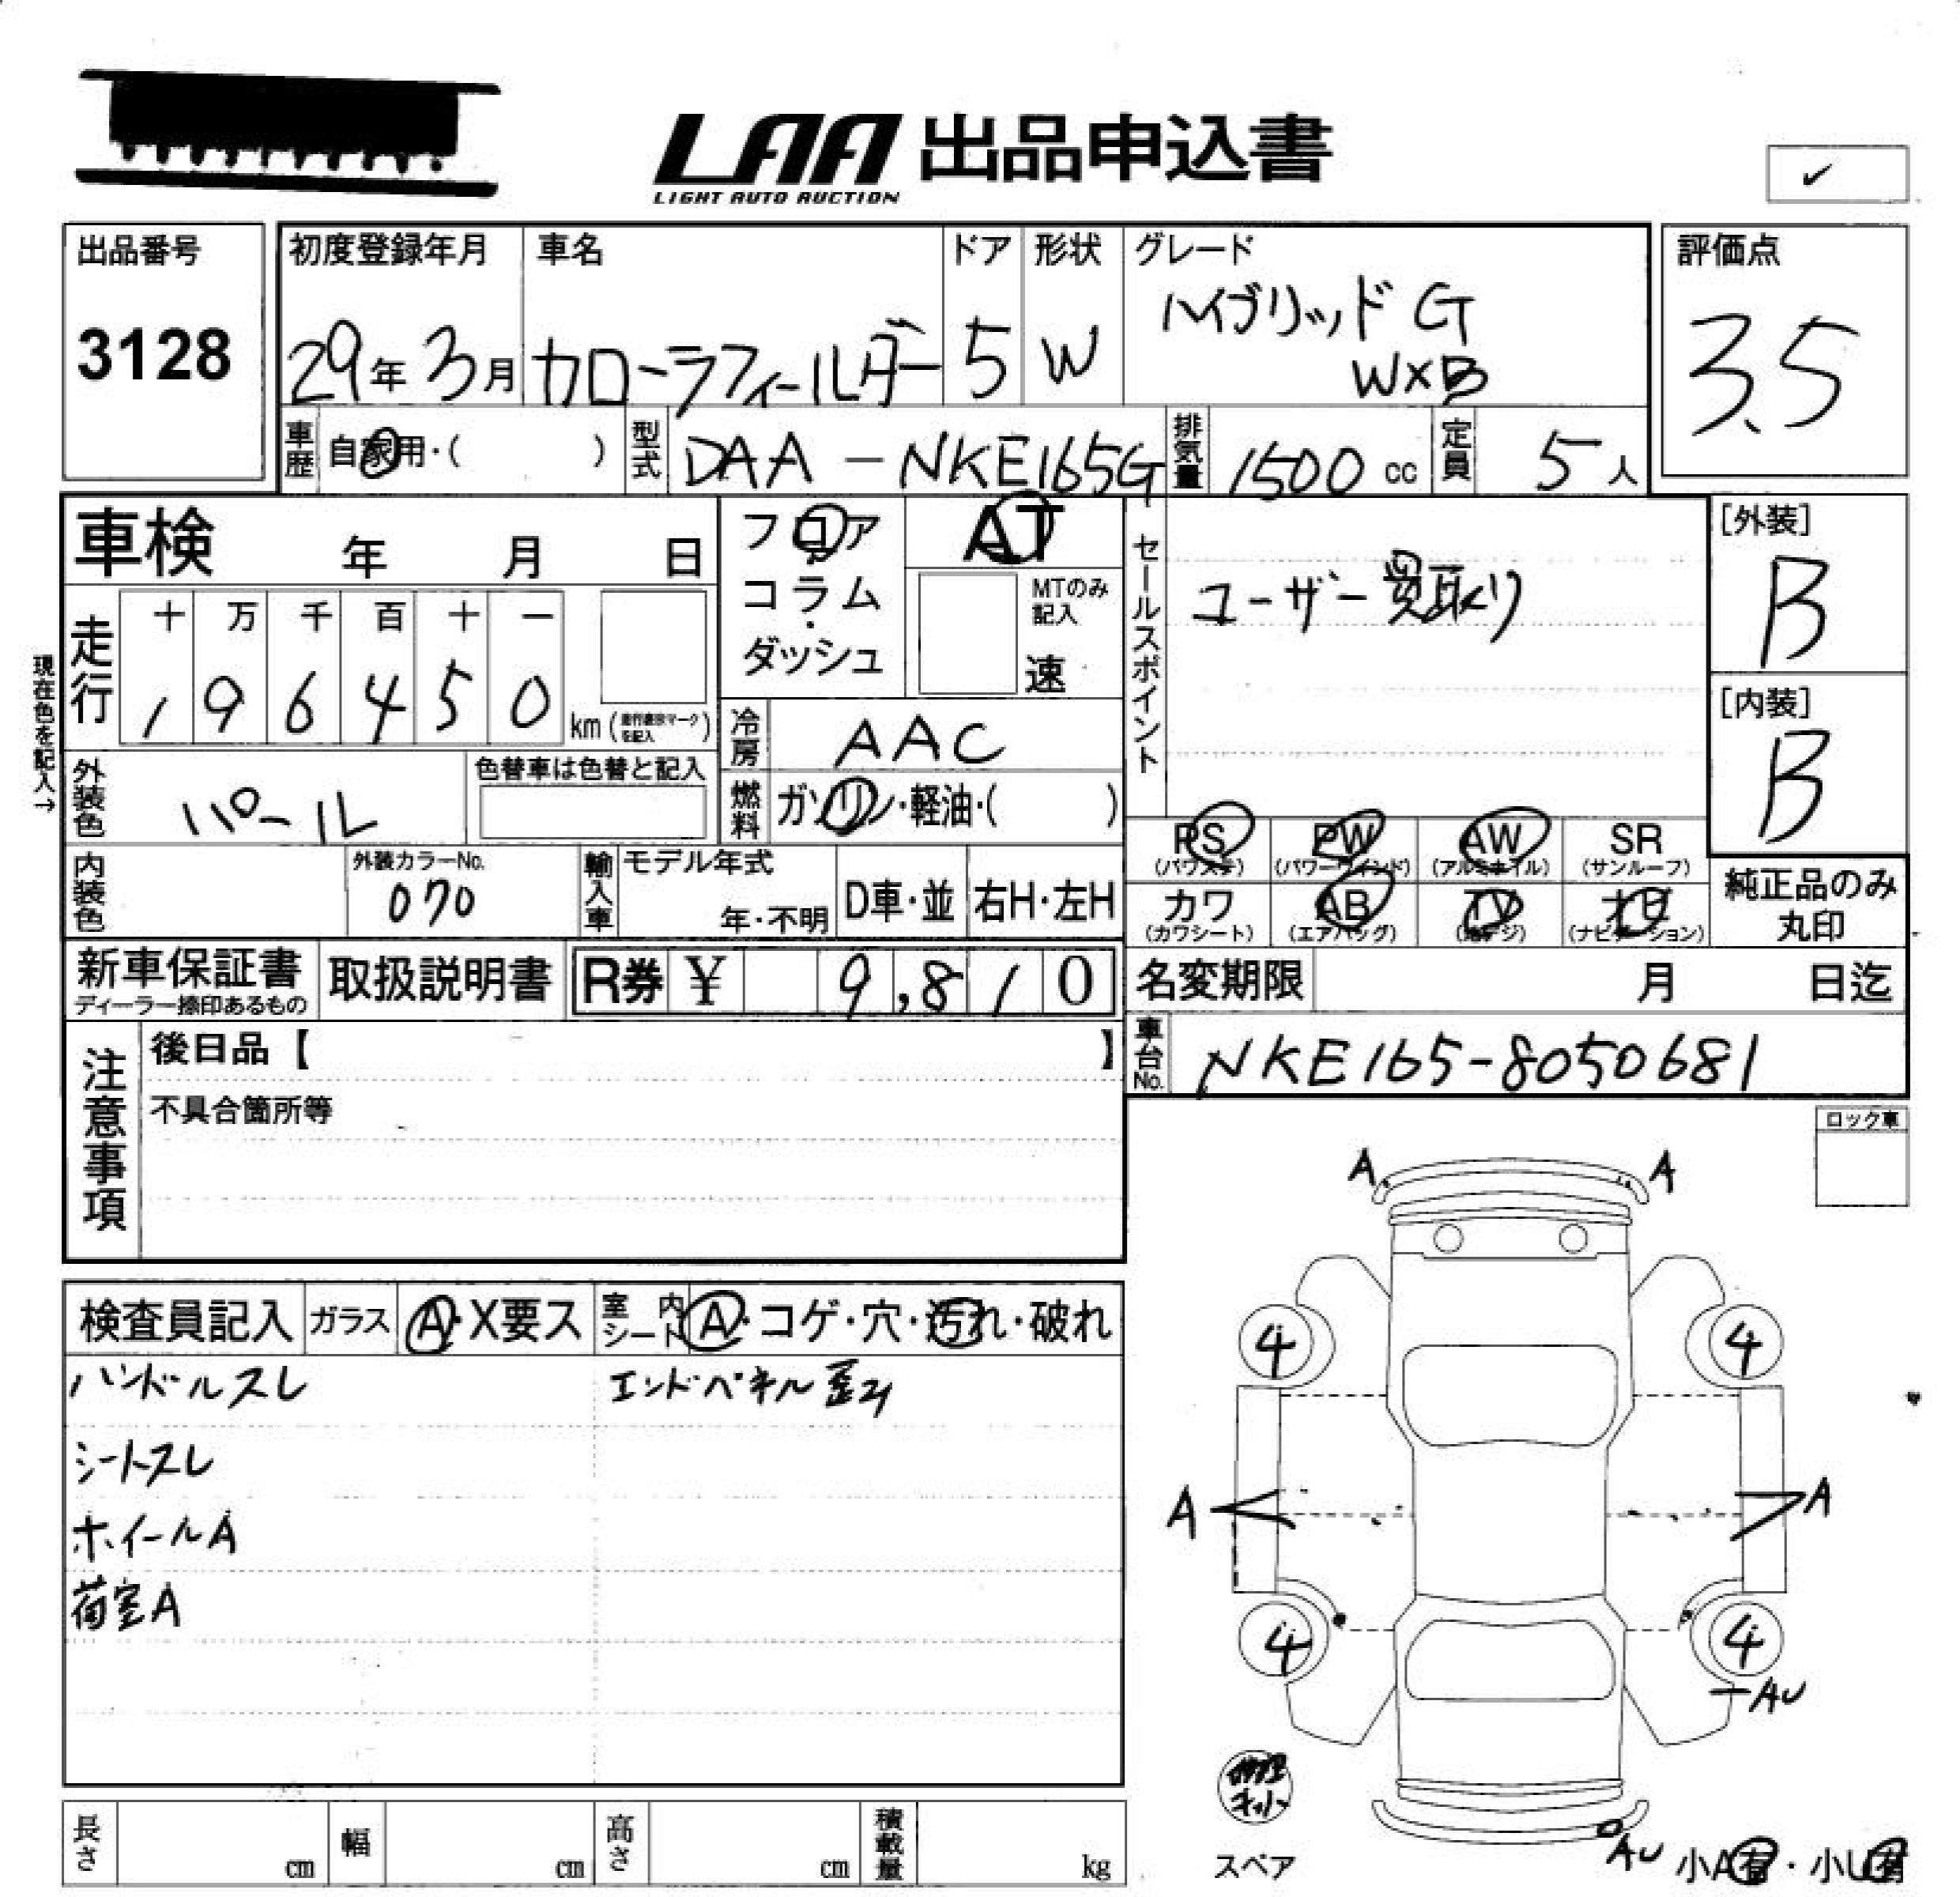 LAA 出品申込書
LIGHT AUTO AUCTION
✓
出品番号
3128
初度登録年月
29年3月
車名
カローラフィールダー
ドア
5
形状
W
グレード
ハイブリッド G
W×B
評価点
3.5
車歴
自家用・( )
型式
DAA-NKE165G
排気量
1500 cc
定員
5人
車検 年 月 日
フロア
コラム
・
ダッシュ
AT
MTのみ
記入
速
セールスポイント
ユーザー買取り
[外装]
B
[内装]
B
現在色を記入→
走行
十 万 千 百 十 一
1 9 6 4 5 0 km
冷房
AAC
外装色
パール
色替車は色替と記入
燃料
ガソリン・軽油・( )
PS
(パワステ)
PW
(パワーウインド)
AW
(アルミホイル)
SR
(サンルーフ)
内装色
外装カラーNo.
070
輸入車
モデル年式
年・不明
D車・並
右H・左H
カワ
(カワシート)
AB
(エアバッグ)
TV
(地デジ)
ナビ
(ナビゲーション)
純正品のみ
丸印
新車保証書
ディーラー捺印あるもの
取扱説明書
R券 ¥ 9,810
名変期限 月 日迄
車台No.
NKE165-8050681
注意事項
後日品【 】
不具合箇所等
ロック車
A A
検査員記入
ガラス
A・X要ス
室内シート
A・コゲ・穴・汚れ・破れ
ハンドルスレ
エンドパネル歪み
シートスレ
ホイールA
荷室A
4 4
A A
4 4
AU
修理
キット
スペア
AU
小A有・小U有
長さ cm
幅 cm
高さ cm
積載量 kg